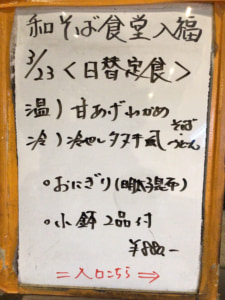 和そば食堂入福
3/23 <日替定食>
温) 甘あげわかめ
冷) 冷やしタヌキ風 そば・うどん
・おにぎり(明太昆布)
・小鉢2品付
¥880-
=入口こちら⇒